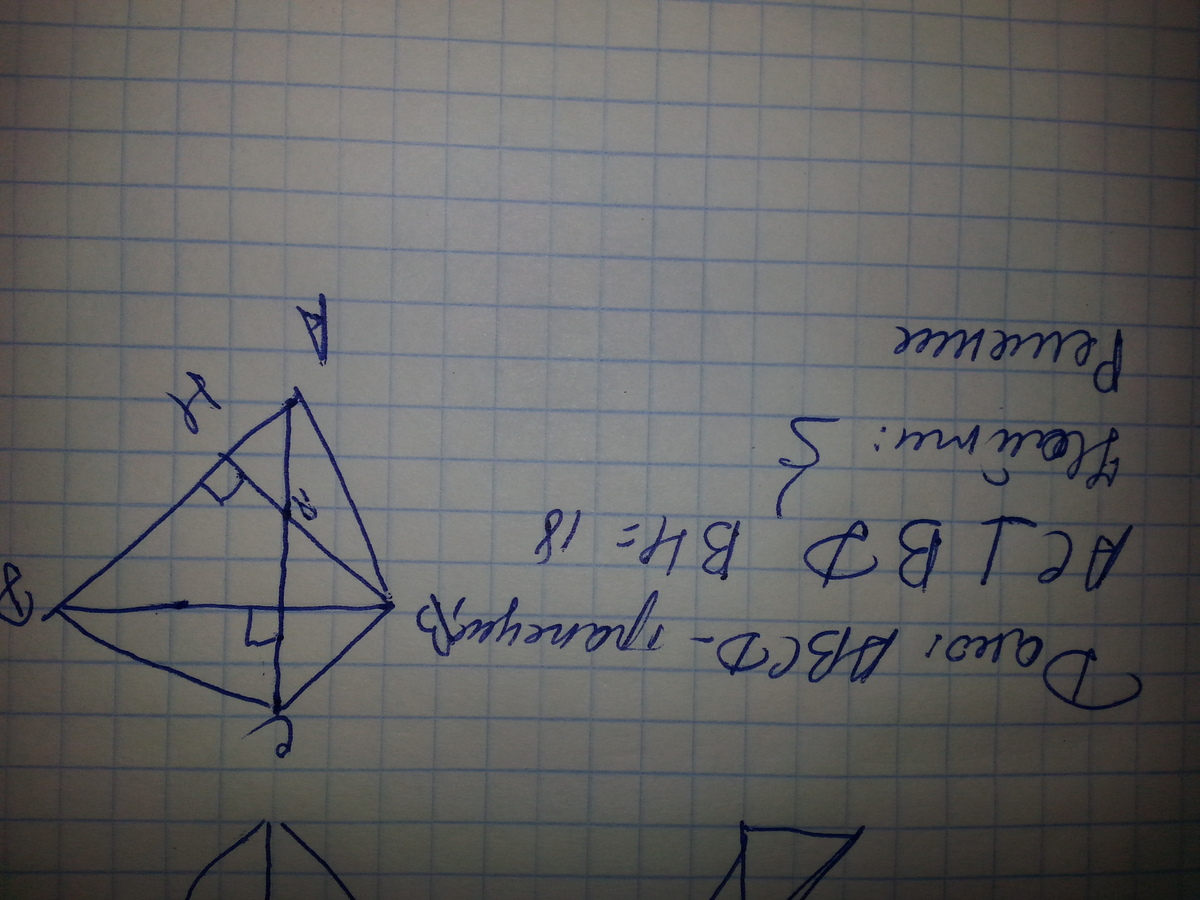 Дано: ABCD - трапеция,
AC ⊥ BD BH = 18
Найти: S
Решение
C
B
D
H
A